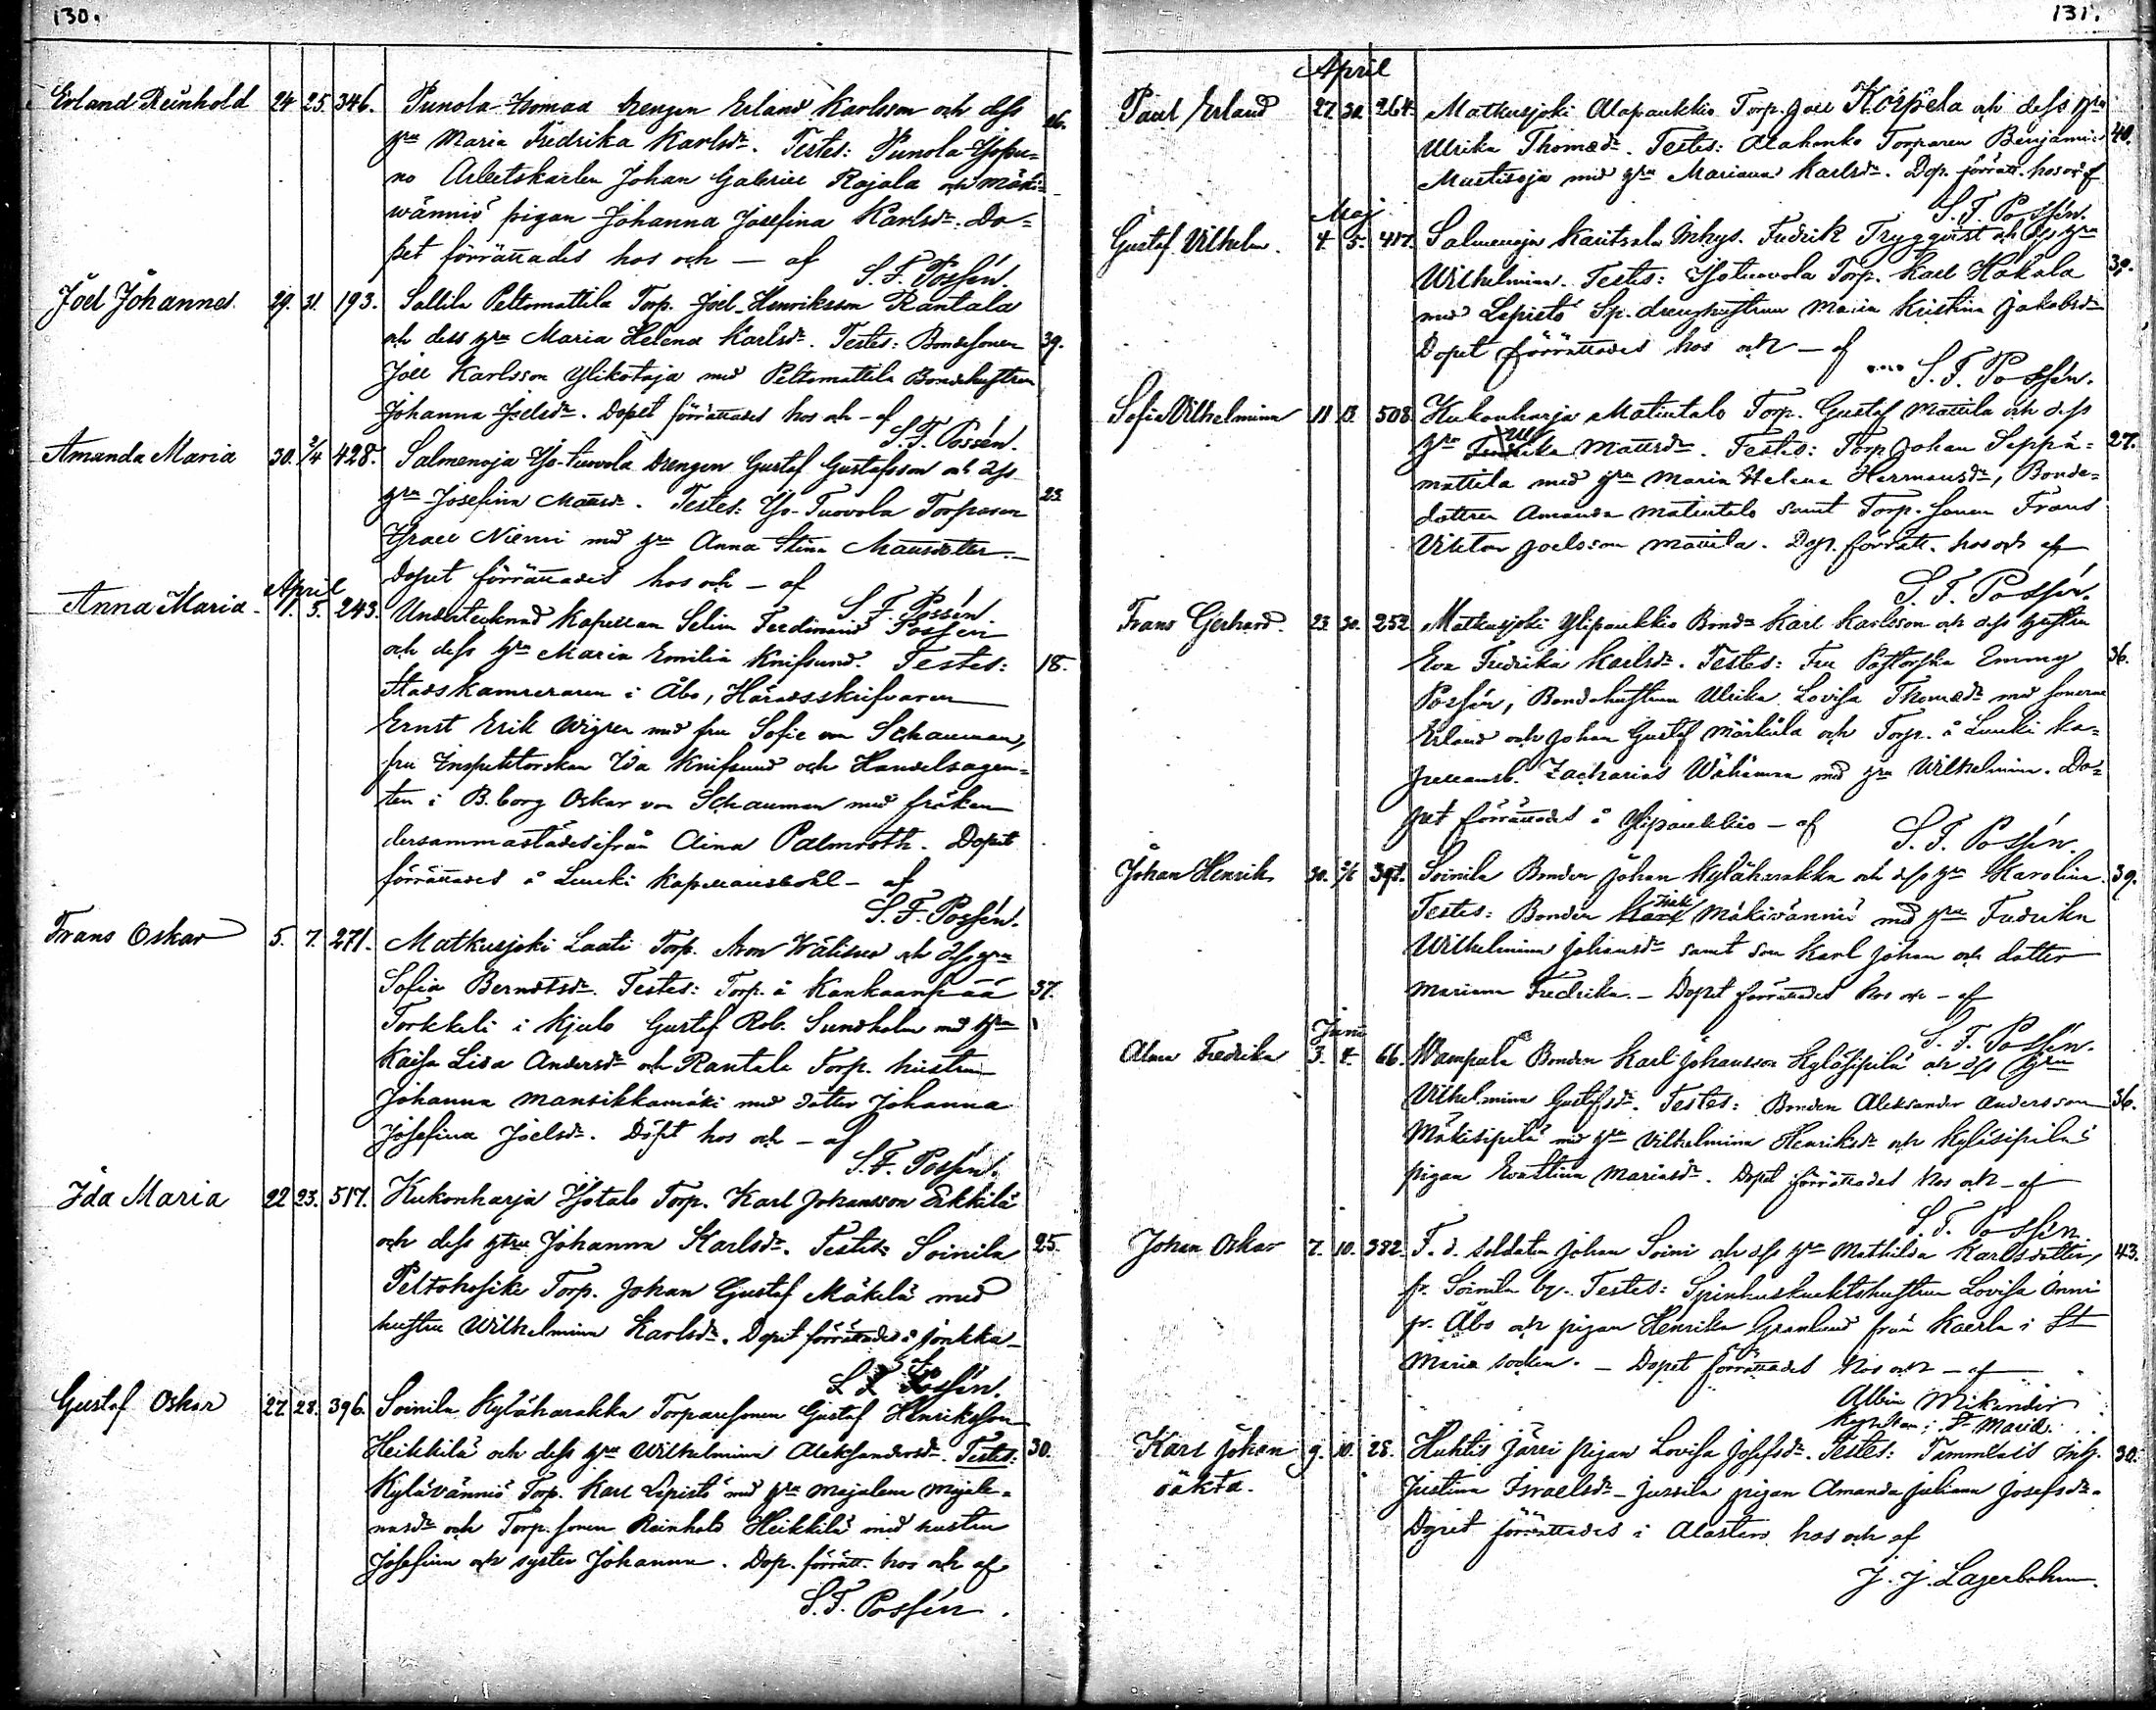 130.
Erland Reinhold 24 25. 346. Punola Tuomaa Drengen Erland Karlsson och dess
hru Maria Fredrika Karlsdr. Testes: Punola Yopu= 26.
no Arbetskarlen Johan Gabriel Rajala och Mäki=
wänniö pigan Johanna Josefina Karlsdr. Do=
pet förrättades hos och — af
S. F. Possén.
Joel Johannes. 29. 31. 193. Sallila Peltomattila Torp. Joel Henriksson Rantala
och dess hru Maria Helena Karlsdr. Testes: Bondesonen 39.
Joel Karlsson Ylikotaja med Peltomattila Bondehustrun
Johanna Joelsdr. Dopet förrättades hos och — af
S. F. Possén.
Amanda Maria 30. 2/4 428. Salmenoja Yso-tuovola Drengen Gustaf Gustafsson och dess
hru Josefina Mattsdr. Testes: Yso-Tuovola Torparen 23
Israel Niemi med hru Anna Stina Mattsdotter. —
Dopet förrättades hos och — af
S. F. Possén
April
Anna Maria 1. 5. 243. Undertecknad Kapellan Selim Ferdinand Possén
och dess hru Maria Emilia Knifsund. Testes: 18.
Stadskamreraren i Åbo, Häradsskrifvaren
Ernst Erik Wigren med fru Sofie von Schauman,
fru Inspektorskan Ida Knifsund och Handelsagen=
ten i B.borg Oskar von Schauman med fröken
dersammastädesifrån Aina Palmroth. Dopet
förrättades å Luuki Kapellansbohl — af
S. F. Possén.
Frans Oskar 5. 7. 271. Matkusjoki Laati Torp. Aron Wälisuo och dess hru
Sofia Berndtsdr. Testes: Torp. å Kankaanpää 37.
Torkkeli i Kjulo Gustaf Rob. Sundholm med hru
Kaisa Lisa Andersdr och Rantala Torp. hustrun
Johanna Mansikkamäki med dotter Johanna
Josefina Joelsdr. Döpt hos och — af
S. F. Possén.
Ida Maria 22 23. 517. Kukonharja Ysotalo Torp. Karl Johansson Erkkilä
och dess hru Johanna Karlsdr. Testes: Soinila 25.
Peltohosike Torp. Johan Gustaf Mäkelä med
hustru Wilhelmina Karlsdr. Dopet förrättades i Jonkka —
S. F. Possén.
Gustaf Oskar 27 28. 396. Soinila Kyläharakka Torparesonen Gustaf Henriksson
Heikkilä och dess hru Wilhelmina Aleksandersdr. Testes: 30.
Kylävänniö Torp. Karl Lepistö med hru Majalena Majale=
nasdr och Torp. sonen Reinhold Heikkilä med hustru
Josefina och syster Johanna. Dop. förrätt. hos och af
S. F. Possén.
131.
April
Paul Erland 27. 30. 264. Matkusjoki Alapaukkio Torp. Joel Korpela och dess hru
Ulrika Thomasdr. Testes: Alahonko Torparen Benjamin 40.
Mustisoja med hru Mariana Karlsdr. Dop. förrätt. hos och af
S. F. Possén.
Maj
Gustaf Vilhelm. 4. 5. 417. Salmenoja Karitsala Inhys. Fredrik Tryggvist och dess hru
Wilhelmina. Testes: Ysotuovola Torp. Karl Hakala 39.
med Lepistö Sp. drenghustrun Maria Kristina Jakobsdr
Dopet förrättades hos och — af
S. F. Possén.
Sofia Vilhelmina 11 13. 508. Kukonharja Matintalo Torp. Gustaf Mattila och dess
hru Ulrika Mattsdr. Testes: Torp. Johan Seppä= 27.
mattila med hru Maria Helena Hermansdr, Bonde=
dottren Amanda Matintalo samt Torp. sonen Frans
Viktor Joelsson Mattila. Dop. förrätt. hos och af
S. F. Possén.
Frans Gerhard. 23. 30. 252. Matkusjoki Ylipaukkio Bond. Karl Karlsson och dess hustru
Eva Fredrika Karlsdr. Testes: Fru Pastorska Emmy 36.
Possén, Bondehustrun Ulrika Lovisa Thomasdr med sonerne
Erland och Johan Gustaf Märkälä och Torp. å Luuki Ka=
pellansb. Zacharias Wähämaa med hru Wilhelmina. Do=
pet förrättades å Ylipaukkio — af
S. F. Possén.
Johan Henrik 30. 2/6 397. Soinila Bonden Johan Kyläharakka och dess hru Karolina. 39.
Testes: Bonden Mäkivänniö med hru Fredrika
Wilhelmina Johansdr samt son Karl Johan och dotter
Mariana Fredrika. — Dopet förrättades hos och — af
S. F. Possén.
Juni
Alma Fredrika 3. 4. 66. Wampula Bonden Karl Johansson Kyläsipilä och dess hru
Vilhelmina Gustafsdr. Testes: Bonden Aleksander Andersson 36.
Mäkisipilä med hru Vilhelmina Henriksdr och Kyläsipilä
pigan Evastina Mariasdr. Dopet förrättades hos och — af
S. F. Possén.
Johan Oskar 7. 10. 382. F. d. soldaten Johan Soini och dess hru Mathilda Karlsdotter, 43.
fr. Soinila by. Testes: Spinhusknektshustrun Lovisa Änni
fr. Åbo och pigan Henrika Granlund från Kaerla i St
Maria socken. — Dopet förrättades hos och — af
Albin Mikander
Kapellan i St Maria.
Karl Johan 9. 10. 28. Huhtis Järvi pigan Lovisa Josefsdr. Testes: Tammiais Inh. 30.
oäkta. Justina Israelsdr — Jussila pigan Amanda Juliana Josefsdr.
Dopet förrättades i Alastaro hos och af
J. J. Lagerbohm.